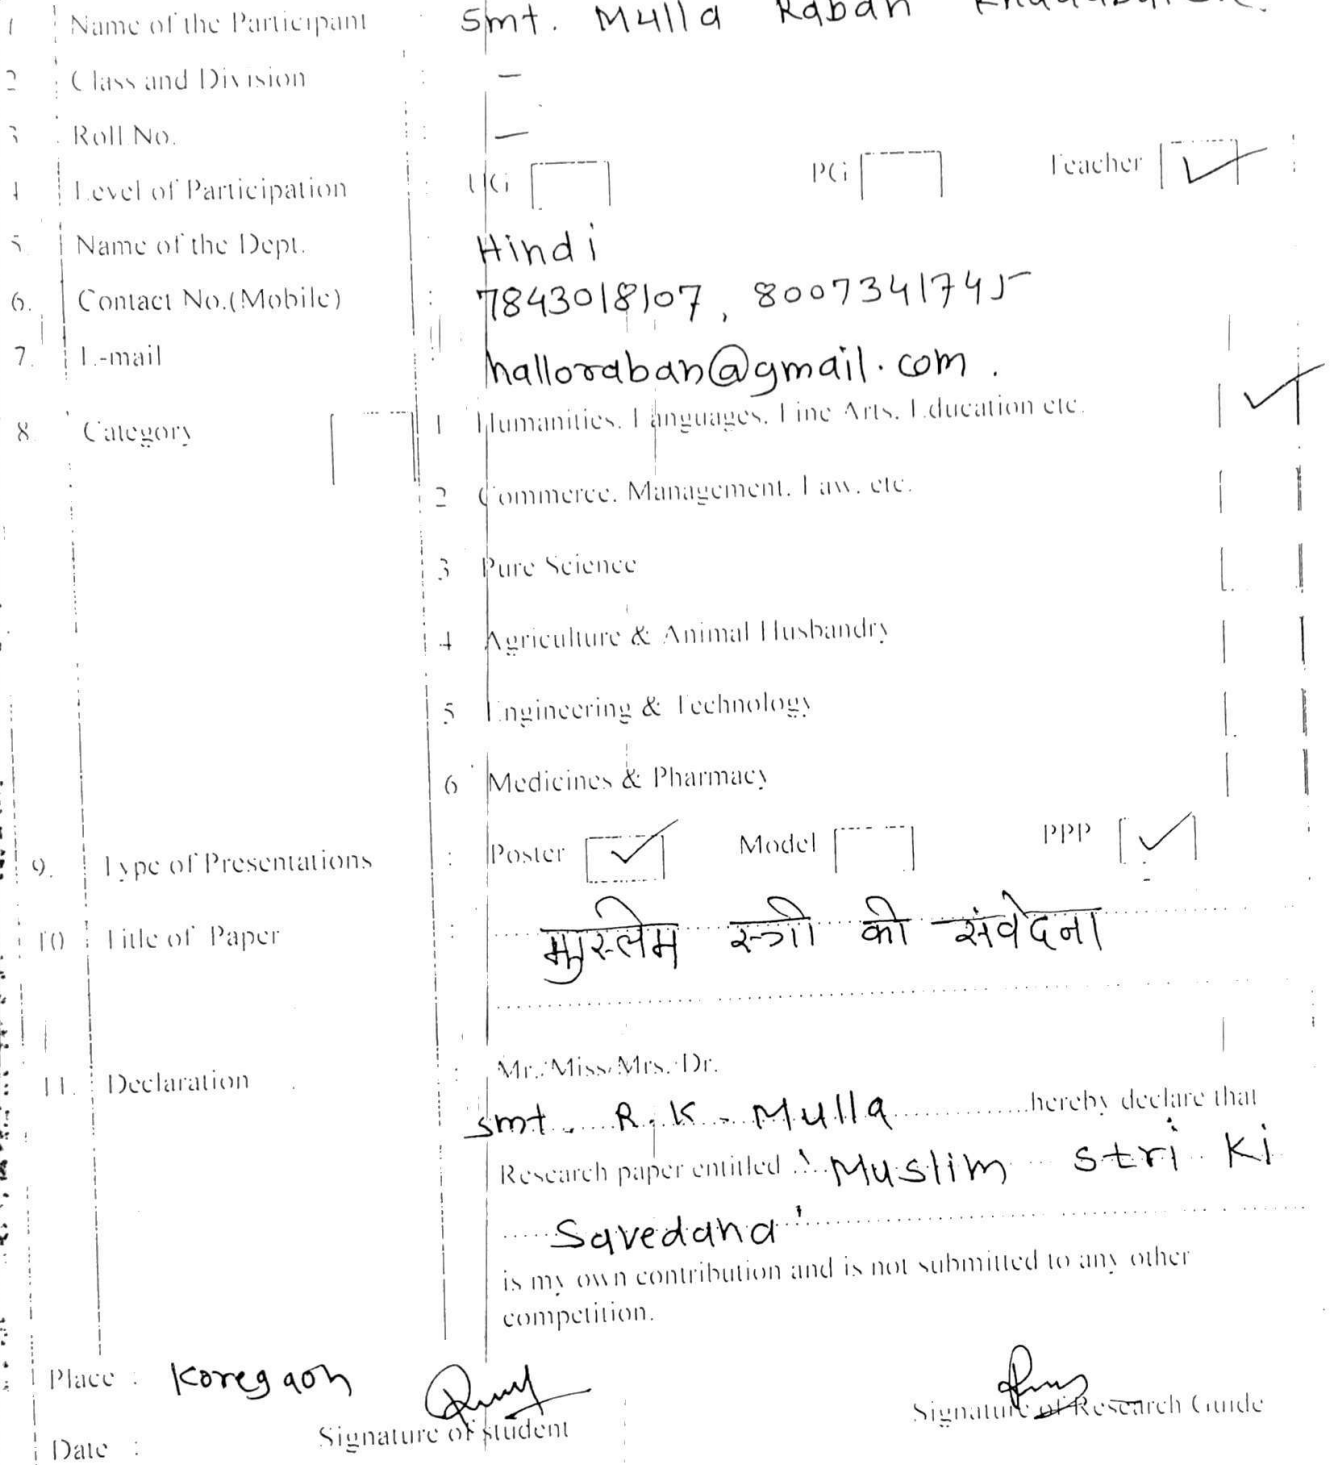 1 Name of the Participant Smt. Mulla Raban
2 Class and Division : —
3 Roll No. : —
4 Level of Participation : UG PG Teacher ✓
5. Name of the Dept. : Hindi
6. Contact No.(Mobile) : 7843018107, 8007341745
7. E-mail : halloraban@gmail.com.
8. Category 1 Humanities, Languages, Fine Arts, Education etc. ✓
2 Commerce, Management, Law, etc.
3 Pure Science
4 Agriculture & Animal Husbandry
5 Engineering & Technology
6 Medicines & Pharmacy
9. Type of Presentations : Poster ✓ Model PPP ✓
10 Title of Paper : मुस्लिम स्त्री की संवेदना
11. Declaration : Mr./Miss/Mrs./Dr.
Smt. R. K. Mulla hereby declare that
Research paper entitled 'Muslim Stri Ki
Savedana'
is my own contribution and is not submitted to any other
competition.
Place : Koregaon
Signature of student Signature of Research Guide
Date :